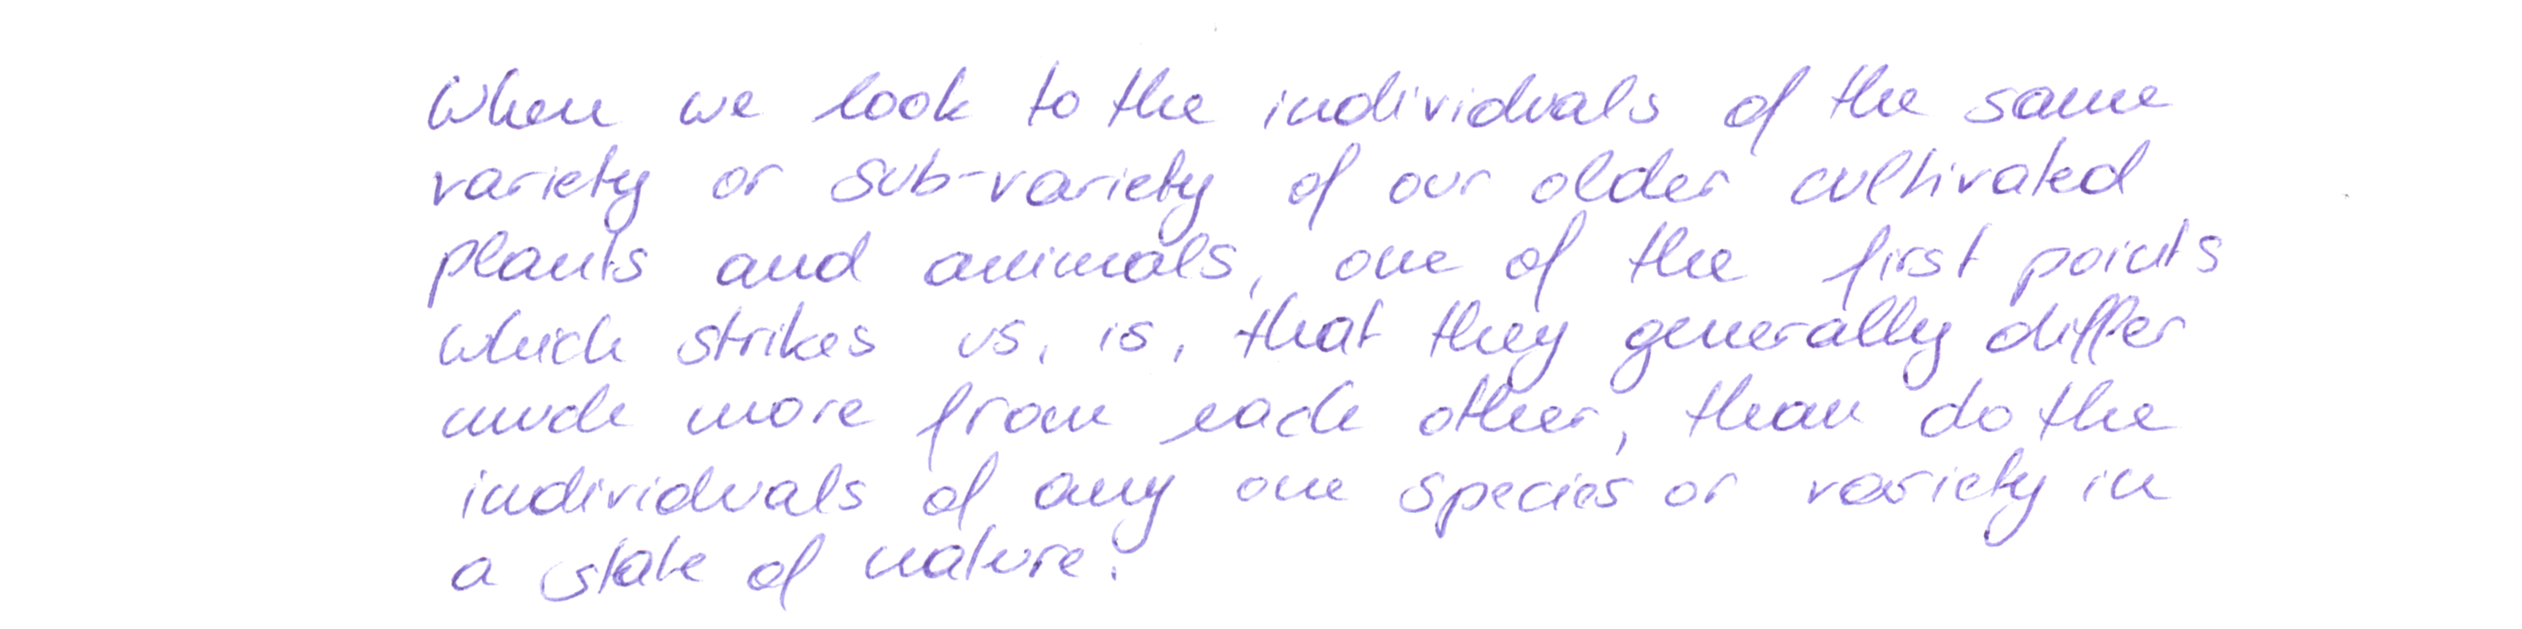 When we look to the individuals of the same
variety or sub-variety of our older cultivated
plants and animals, one of the first points
which strikes us, is, that they generally differ
much more from each other, than do the
individuals of any one species or variety in
a state of nature.